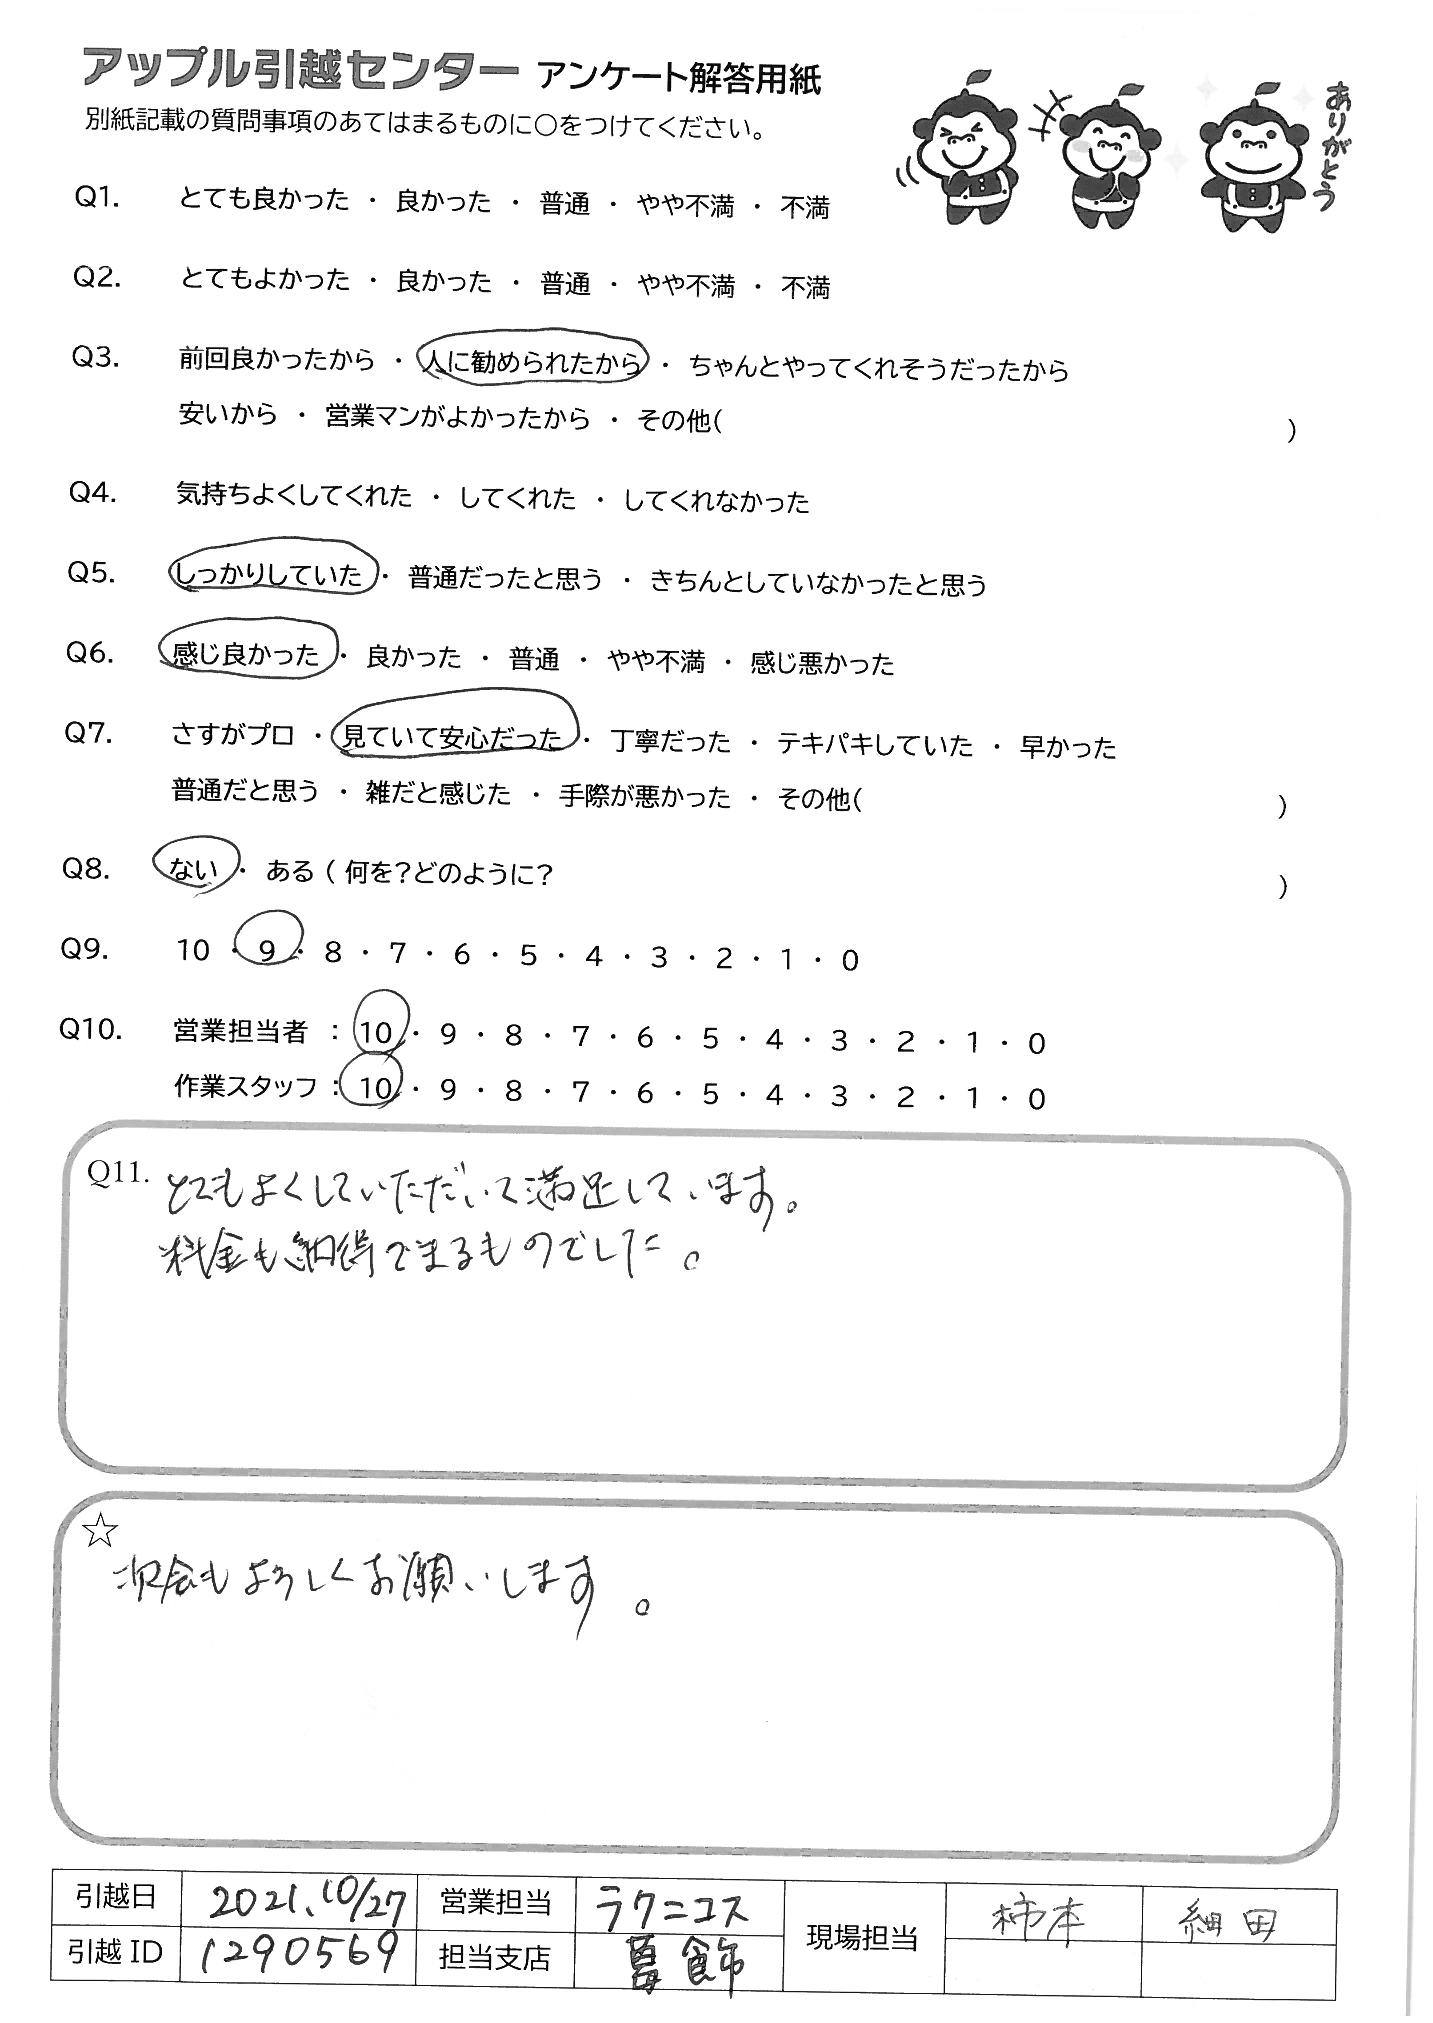 アップル引越センター アンケート解答用紙
別紙記載の質問事項のあてはまるものに○をつけてください。
ありがとう
Q1. とても良かった ・ 良かった ・ 普通 ・ やや不満 ・ 不満
Q2. とてもよかった ・ 良かった ・ 普通 ・ やや不満 ・ 不満
Q3. 前回良かったから ・ 人に勧められたから ・ ちゃんとやってくれそうだったから
安いから ・ 営業マンがよかったから ・ その他( )
Q4. 気持ちよくしてくれた ・ してくれた ・ してくれなかった
Q5. しっかりしていた ・ 普通だったと思う ・ きちんとしていなかったと思う
Q6. 感じ良かった ・ 良かった ・ 普通 ・ やや不満 ・ 感じ悪かった
Q7. さすがプロ ・ 見ていて安心だった ・ 丁寧だった ・ テキパキしていた ・ 早かった
普通だと思う ・ 雑だと感じた ・ 手際が悪かった ・ その他( )
Q8. ない ・ ある ( 何を?どのように? )
Q9. 10 ・ 9 ・ 8 ・ 7 ・ 6 ・ 5 ・ 4 ・ 3 ・ 2 ・ 1 ・ 0
Q10. 営業担当者 : 10 ・ 9 ・ 8 ・ 7 ・ 6 ・ 5 ・ 4 ・ 3 ・ 2 ・ 1 ・ 0
作業スタッフ : 10 ・ 9 ・ 8 ・ 7 ・ 6 ・ 5 ・ 4 ・ 3 ・ 2 ・ 1 ・ 0
Q11. とてもよくしていただいて満足しています。
料金も納得できるものでした。
☆
次会もよろしくお願いします。
引越日 2021.10/27 営業担当 ラクニコス 現場担当 柿本 細田
引越ID 1290569 担当支店 葛飾